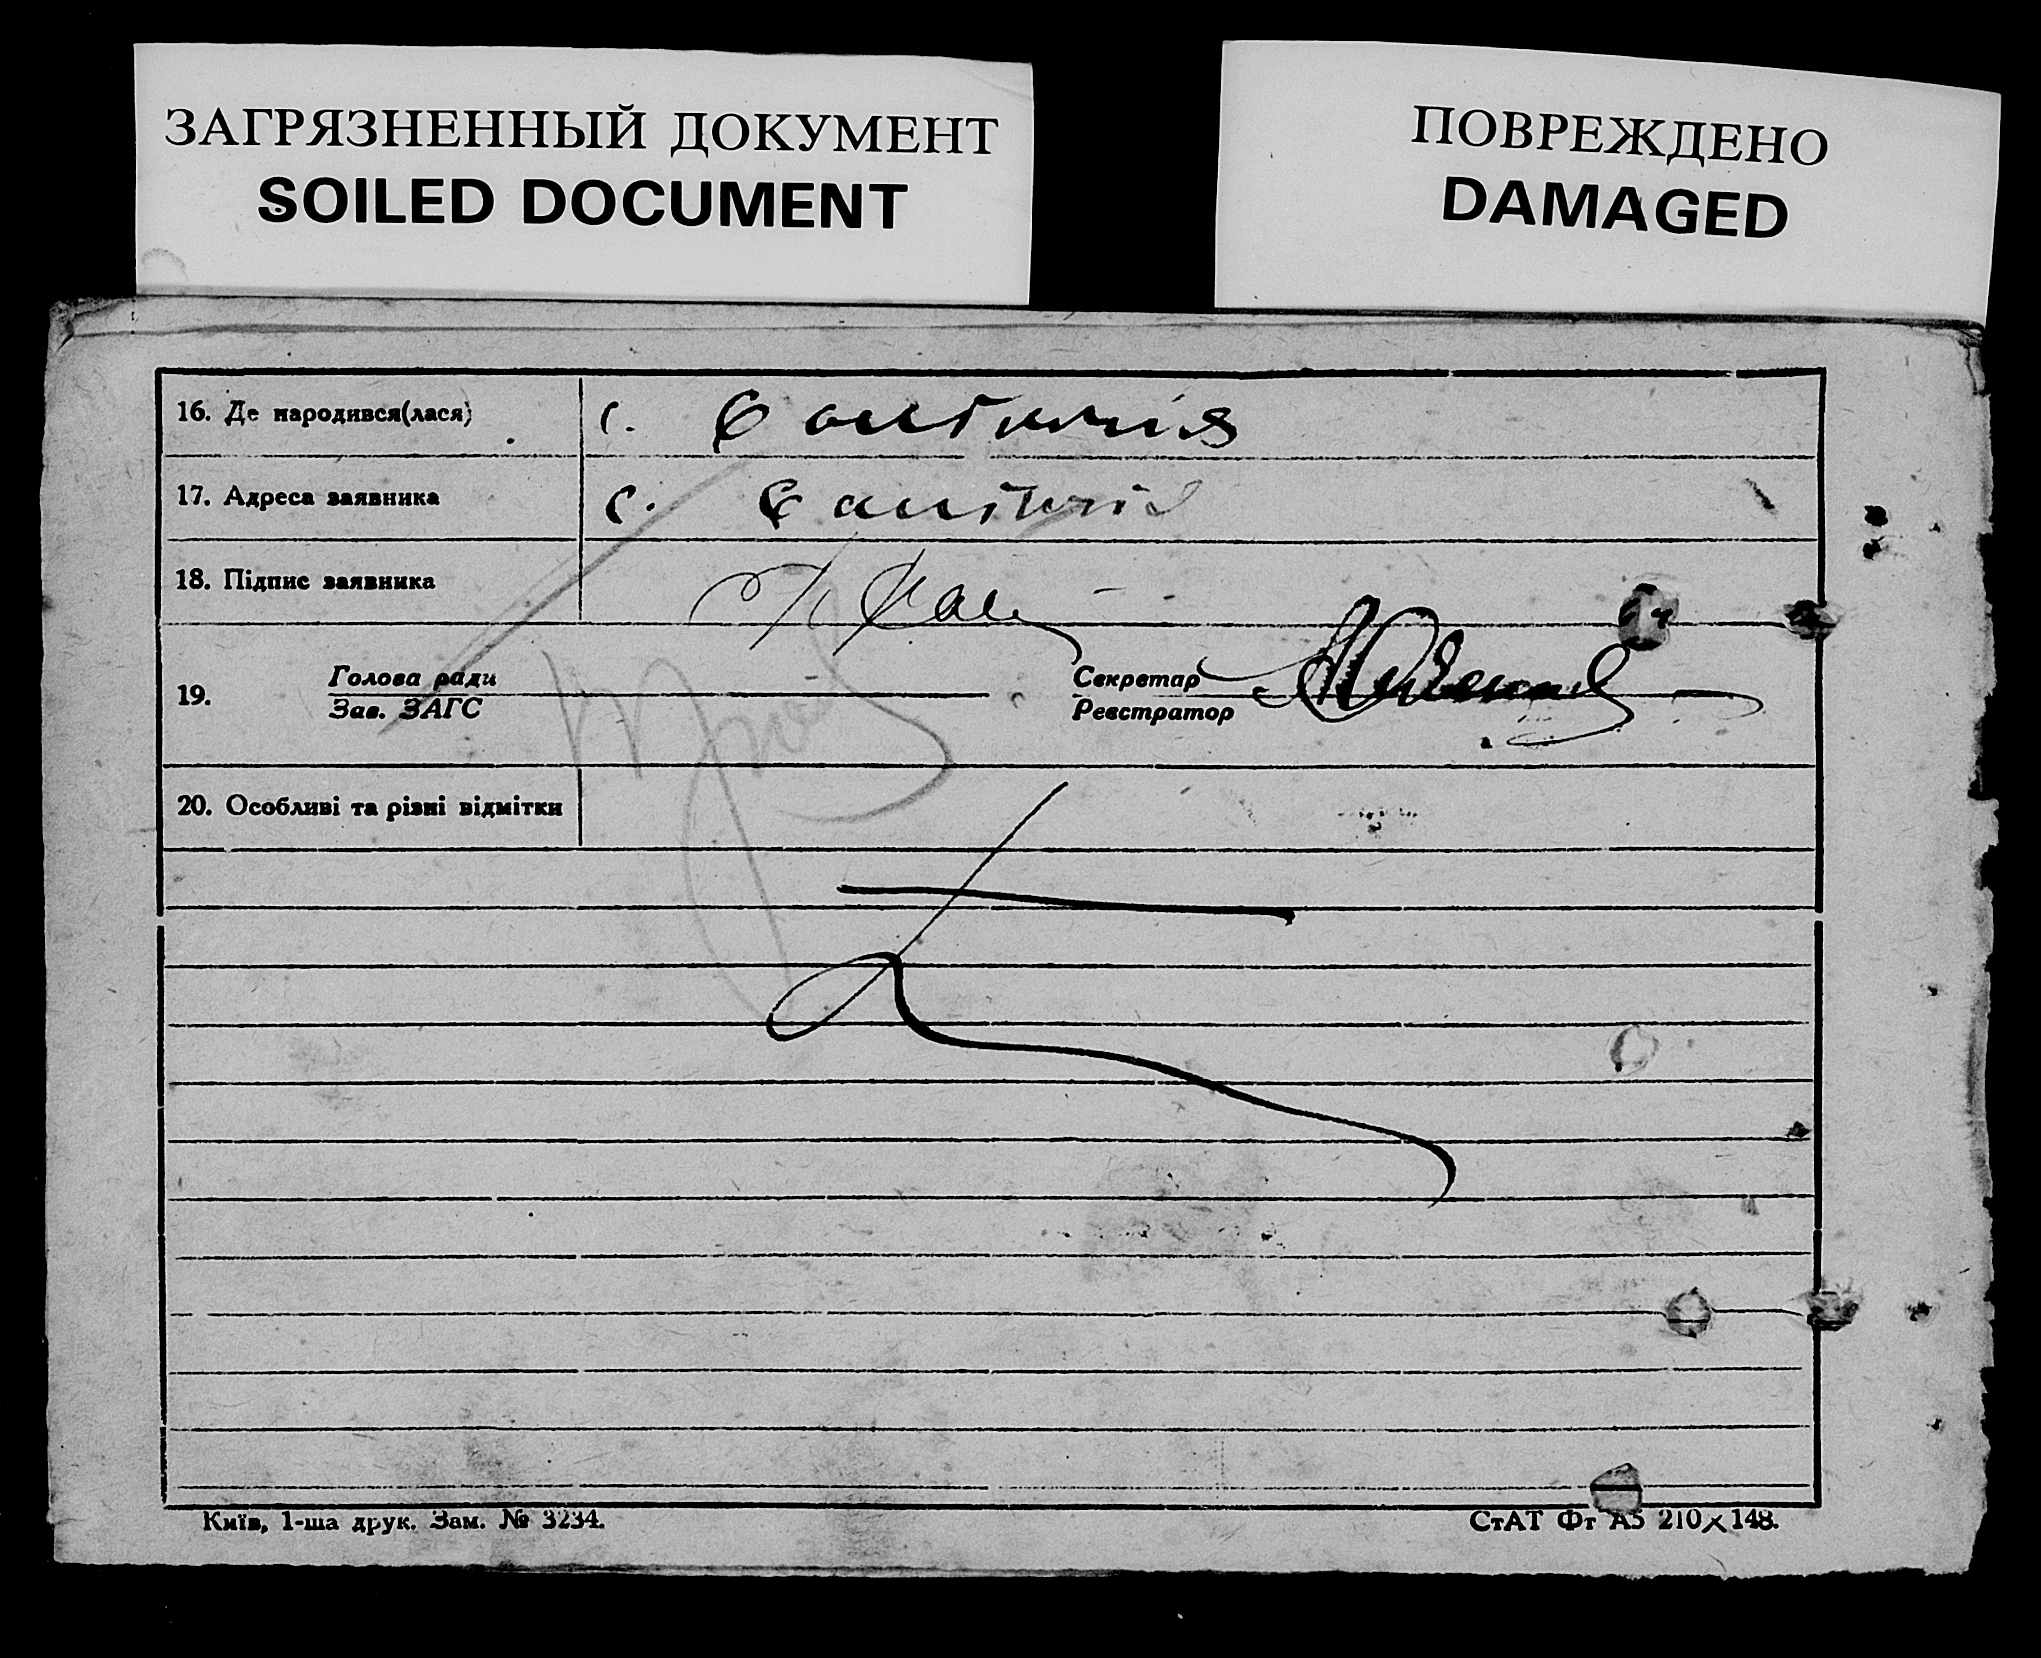 ЗАГРЯЗНЕННЫЙ ДОКУМЕНТ
SOILED DOCUMENT
ПОВРЕЖДЕНО
DAMAGED
16. Де народився(лася) с.
17. Адреса заявника с.
18. Підпис заявника
19. Голова ради Секретар
Зав. ЗАГС Реєстратор
20. Особливі та різні відмітки
Київ, 1-ша друк. Зам. № 3234. СтАТ Фт А5 210×148.